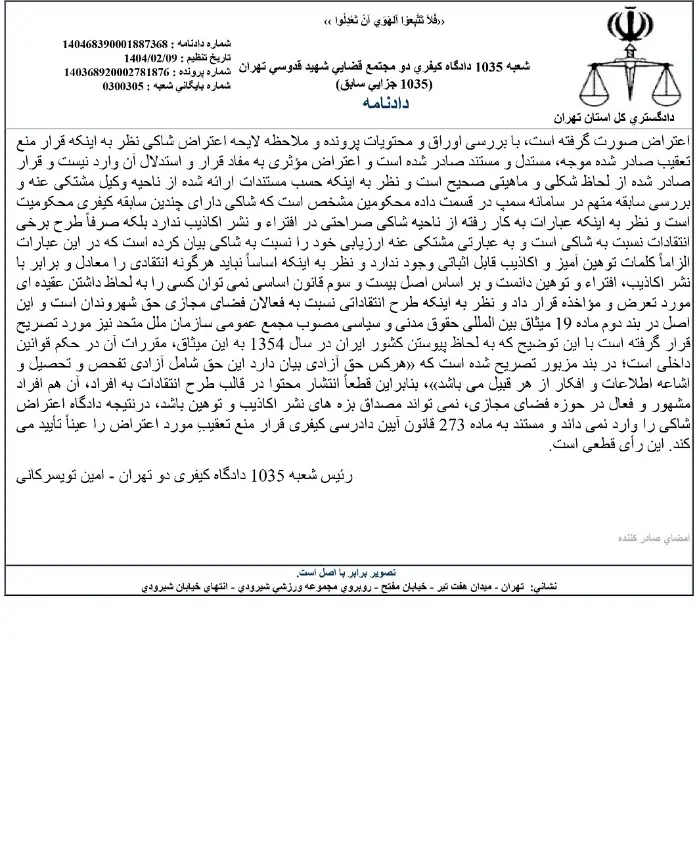 ‹‹فَلاَ تَتَّبِعُوا اَلْهَوىٰ أَنْ تَعْدِلُوا ››
شماره دادنامه : 140468390001887368
تاریخ تنظیم : 1404/02/09
شماره پرونده : 140368920002781876
شماره بایگانی شعبه : 0300305
شعبه 1035 دادگاه کیفری دو مجتمع قضایی شهید قدوسی تهران
(1035 جزایی سابق)
دادنامه
دادگستری کل استان تهران
اعتراض صورت گرفته است، با بررسی اوراق و محتویات پرونده و ملاحظه لایحه اعتراض شاکی نظر به اینکه قرار منع
تعقیب صادر شده موجه، مستدل و مستند صادر شده است و اعتراض مؤثری به مفاد قرار و استدلال آن وارد نیست و قرار
صادر شده از لحاظ شکلی و ماهیتی صحیح است و نظر به اینکه حسب مستندات ارائه شده از ناحیه وکیل مشتکی عنه و
بررسی سابقه متهم در سامانه سمپ در قسمت داده محکومین مشخص است که شاکی دارای چندین سابقه کیفری محکومیت
است و نظر به اینکه عبارات به کار رفته از ناحیه شاکی صراحتی در افتراء و نشر اکاذیب ندارد بلکه صرفاً طرح برخی
انتقادات نسبت به شاکی است و به عبارتی مشتکی عنه ارزیابی خود را نسبت به شاکی بیان کرده است که در این عبارات
الزاماً کلمات توهین آمیز و اکاذیب قابل اثباتی وجود ندارد و نظر به اینکه اساساً نباید هرگونه انتقادی را معادل و برابر با
نشر اکاذیب، افتراء و توهین دانست و بر اساس اصل بیست و سوم قانون اساسی نمی توان کسی را به لحاظ داشتن عقیده ای
مورد تعرض و مؤاخذه قرار داد و نظر به اینکه طرح انتقاداتی نسبت به فعالان فضای مجازی حق شهروندان است و این
اصل در بند دوم ماده 19 میثاق بین المللی حقوق مدنی و سیاسی مصوب مجمع عمومی سازمان ملل متحد نیز مورد تصریح
قرار گرفته است با این توضیح که به لحاظ پیوستن کشور ایران در سال 1354 به این میثاق، مقررات آن در حکم قوانین
داخلی است؛ در بند مزبور تصریح شده است که «هرکس حق آزادی بیان دارد این حق شامل آزادی تفحص و تحصیل و
اشاعه اطلاعات و افکار از هر قبیل می باشد»، بنابراین قطعاً انتشار محتوا در قالب طرح انتقادات به افراد، آن هم افراد
مشهور و فعال در حوزه فضای مجازی، نمی تواند مصداق بزه های نشر اکاذیب و توهین باشد، درنتیجه دادگاه اعتراض
شاکی را وارد نمی داند و مستند به ماده 273 قانون آیین دادرسی کیفری قرار منع تعقیبِ مورد اعتراض را عیناً تأیید می
کند. این رأی قطعی است.
رئیس شعبه 1035 دادگاه کیفری دو تهران - امین تویسرکانی
امضای صادر کننده
تصویر برابر با اصل است.
نشانی: تهران - میدان هفت تیر - خیابان مفتح - روبروی مجموعه ورزشی شیرودی - انتهای خیابان شیرودی